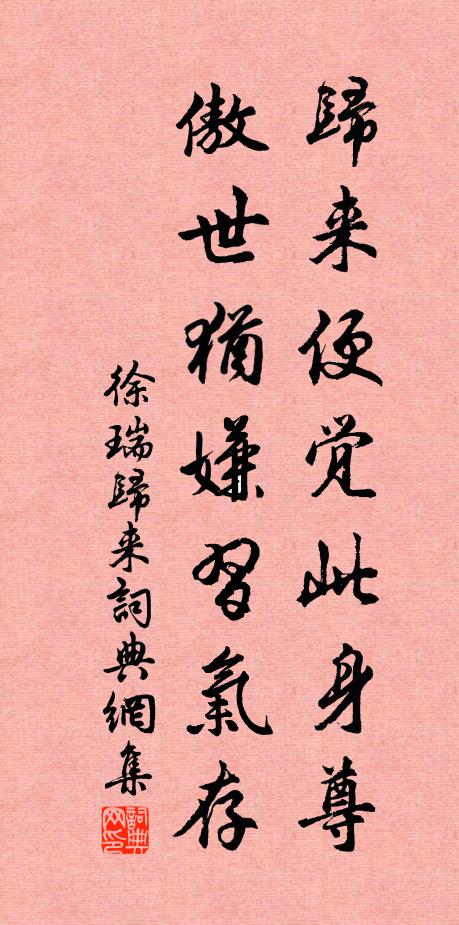 歸来便觉此身尊
傲世猶嫌習氣存
徐瑞歸来詞典網集
詞典网印